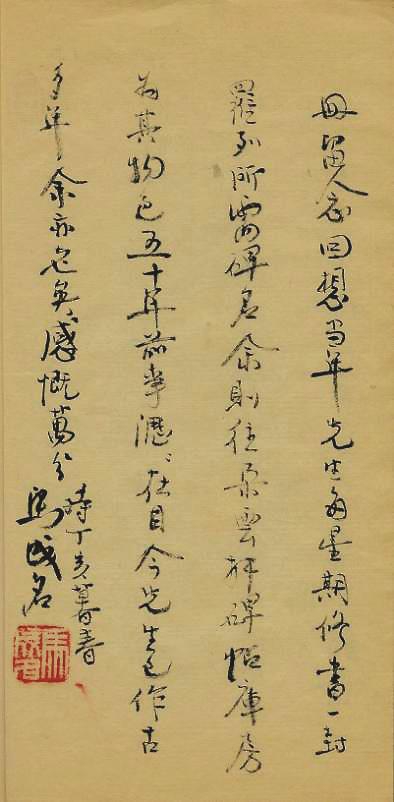 冊留念回想当年先生每星期修書一封
羅列所需碑名余則往朵雲軒碑帖庫房
为其物色五十年前事歷〻在目今先生已作古
多年余亦老矣感慨萬分
時丁亥暮春
馬成名
馬成名